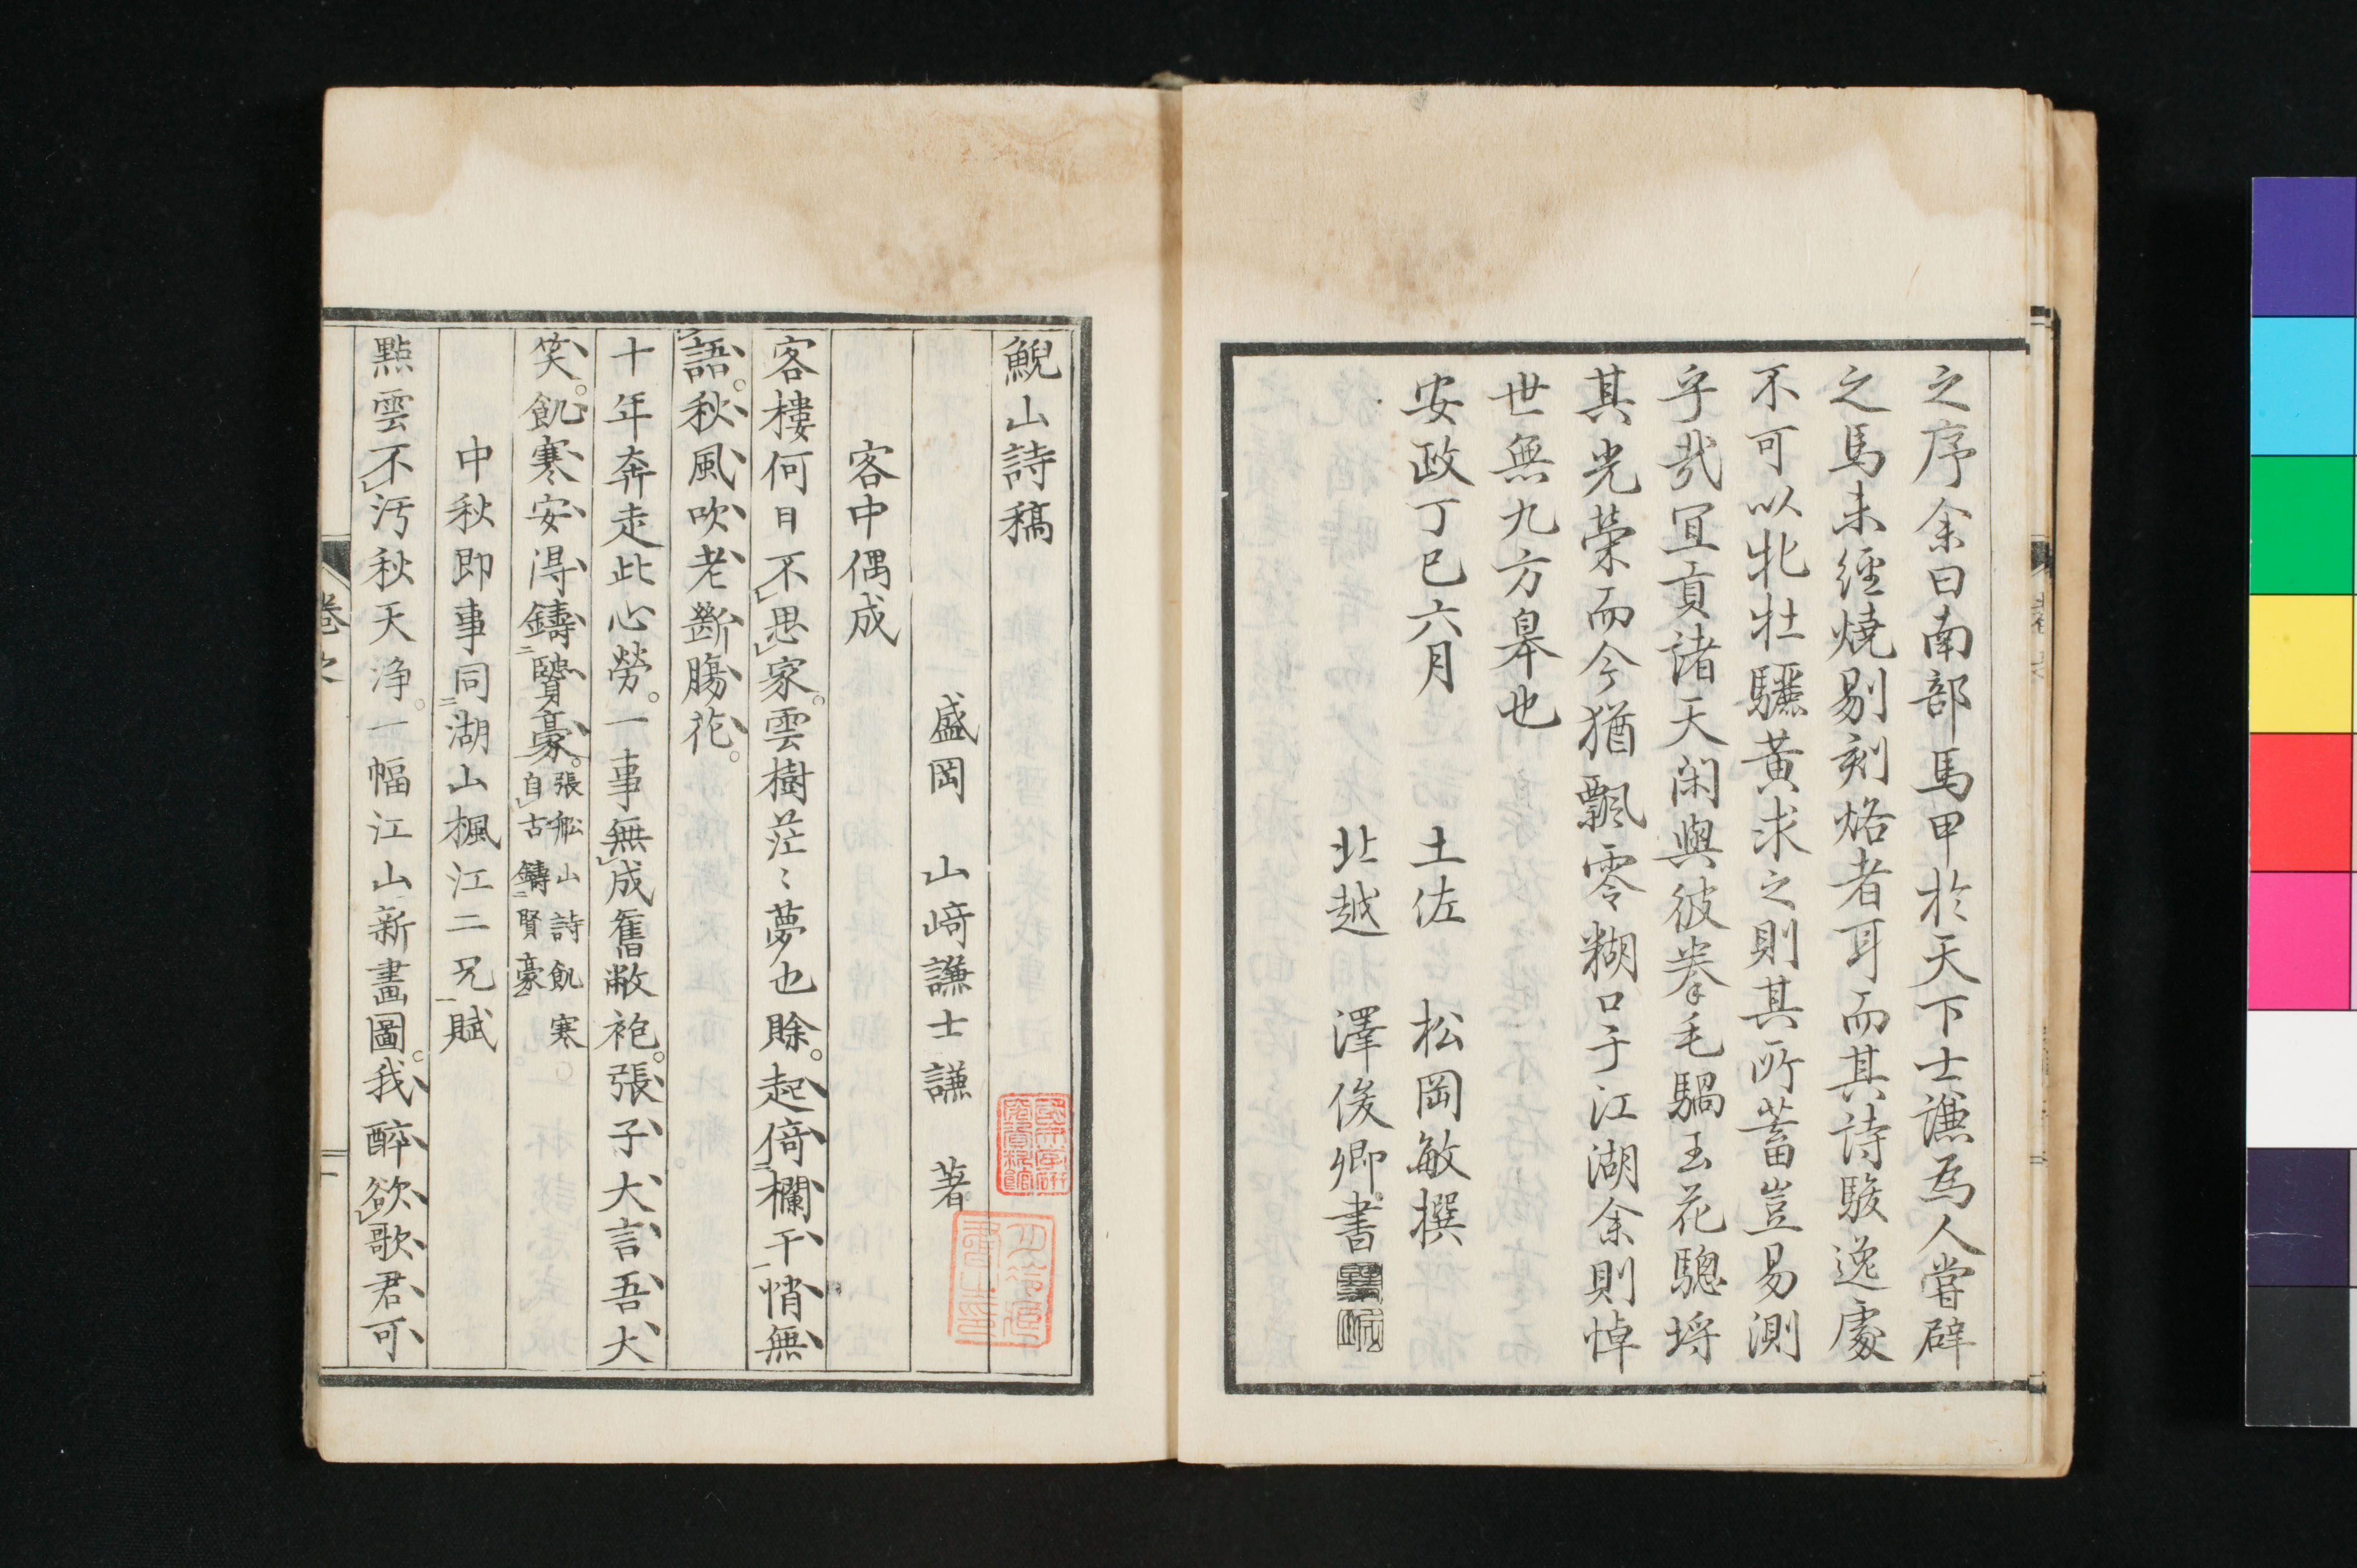 之序余曰南部馬甲於天下士謙為人嘗辟
之馬未經燒剔刻烙者耳而其詩駿逸處
不可以牝牡驪黃求之則其所蓄豈易測
乎哉宜貢諸天閑與彼拳毛騧玉花驄埒
其光榮而今猶飄零糊口于江湖余則悼
世無九方皋也
安政丁巳六月
土佐 松岡敏撰
北越 澤俊卿書
鯢山詩稿
盛岡 山﨑謙士謙 著
客中偶成
客樓何日不思家。雲樹茫〻夢也賒。起倚欄干悄無
語。秋風吹老斷腸花。
十年奔走此心勞。一事無成舊敝袍。張子大言吾大
笑。飢寒安得鑄賢豪。
張船山詩飢寒
自古鑄賢豪
中秋即事同湖山楓江二兄賦
點雲不汚秋天浄。一幅江山新畫圖。我醉欲歌君可